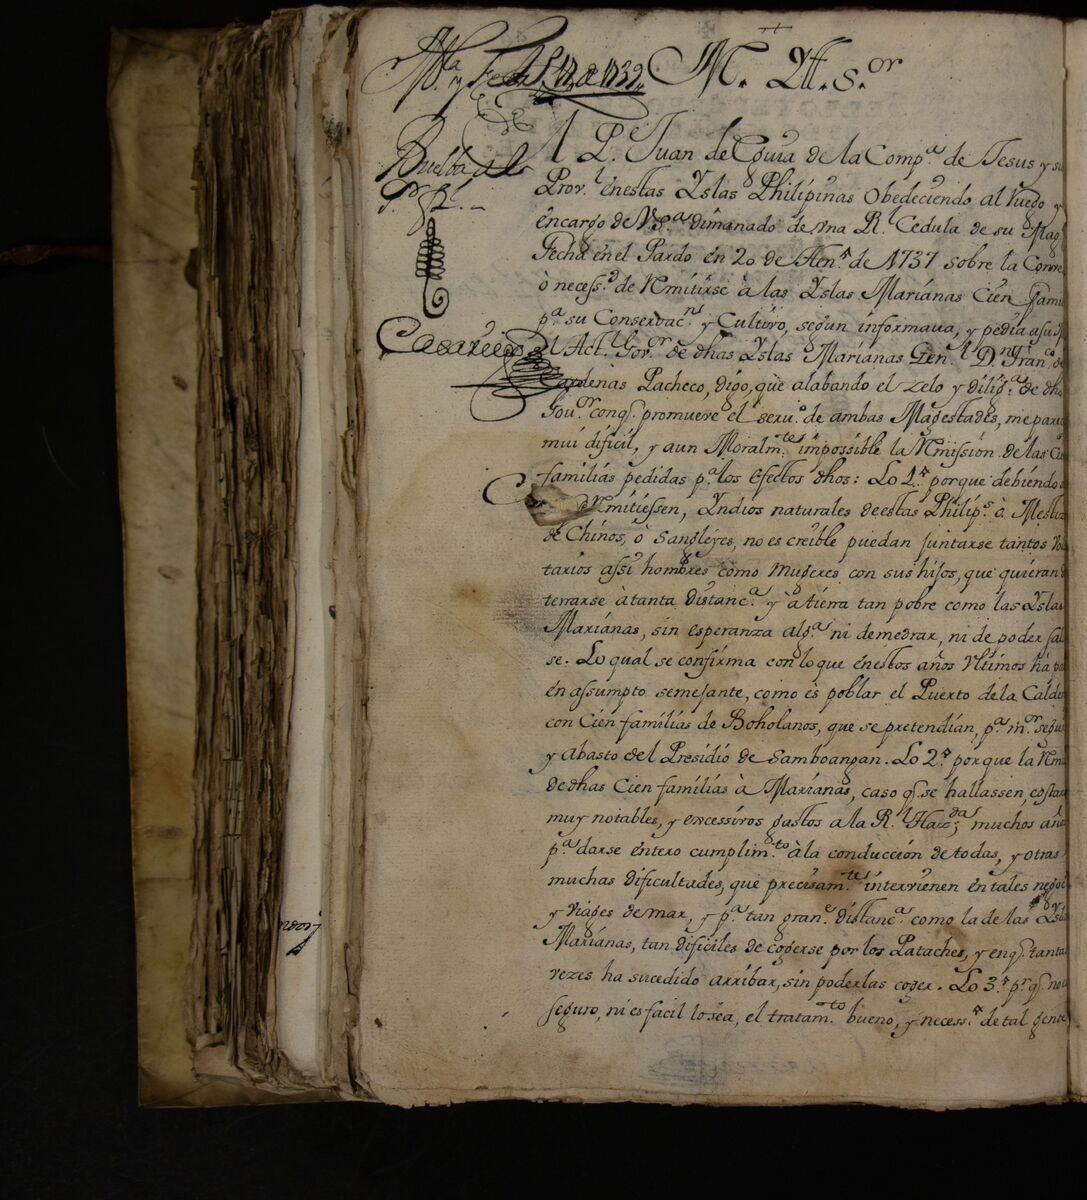 M. Ill. s.or
l P.e Juan de Eguia de la Comp.a de Jesus y su
Prov.l én estas Yslas Philipinas Obedeciendo al Ruego y
éncargo de V.S.a dimanado de vna R.l Cedula de su Mag
Fecha én el Pardo én 20 de Hen.o de 1737 sobre la Conve
ò necess.d de Rmitirse à las Yslas Marianas Cien fami
p.a su Conservac.n y Cultivo, segun informaua, y pedia a su
el Act.l Gov.or de dhas Yslas Marianas Gen.l D.n Fran.co de
Cardenas Pacheco, digo, que alabando el zelo y dilig.a de dho
Gou.or con q. promueve el serv.o de ambas Magestades, me parece
mui dificil, y aun Moralm.te impossible la Rmission de las Ci
familias pedidas p.a los efectos dhos: Lo 1.o porque debiendo
Rmitiessen, Yndios naturales de estas Philip.s ò Mestiz
de Chinos, ò Sangleyes, no es creible puedan juntarse tantos Vo
tarios assi hombres como Mugeres con sus hijos, que quieran d
terrarse à tanta distanc.a y à tierra tan pobre como las Yslas
Marianas, sin esperanza alg.a ni de medrar, ni de poder sal
se. Lo qual se confirma con lo que én estos años Vltimos hà pa
én assumpto semejante, como és poblar el Puerto de la Calde
con Cien familias de Boholanos, que se pretendian, p.a m.or segu
y abasto del Presidio de Samboangan. Lo 2.o porque la Rmi
de dhas Cien familias à Marianas, caso q. se hallassen, costara
muy notables, y excessivos gastos a la R.l Haz.da; muchos años
p.a darse éntero cumplim.to à la conducción de todas, y otras
muchas dificultades, que precisam.te intervienen én tales negoci
y viages de mar, y p.a tan gran.e distanc.a como la de las Ysla
Marianas, tan dificiles de cogerse por los Pataches, y en q. tanta
vezes ha sucedido arribar, sin poderlas coger. Lo 3.o p.r q. no
seguro, ni es facil lo sea, el tratam.to bueno, y necess.o de tal gente
M.a y Feb.o 17 de 1739
Buelba al